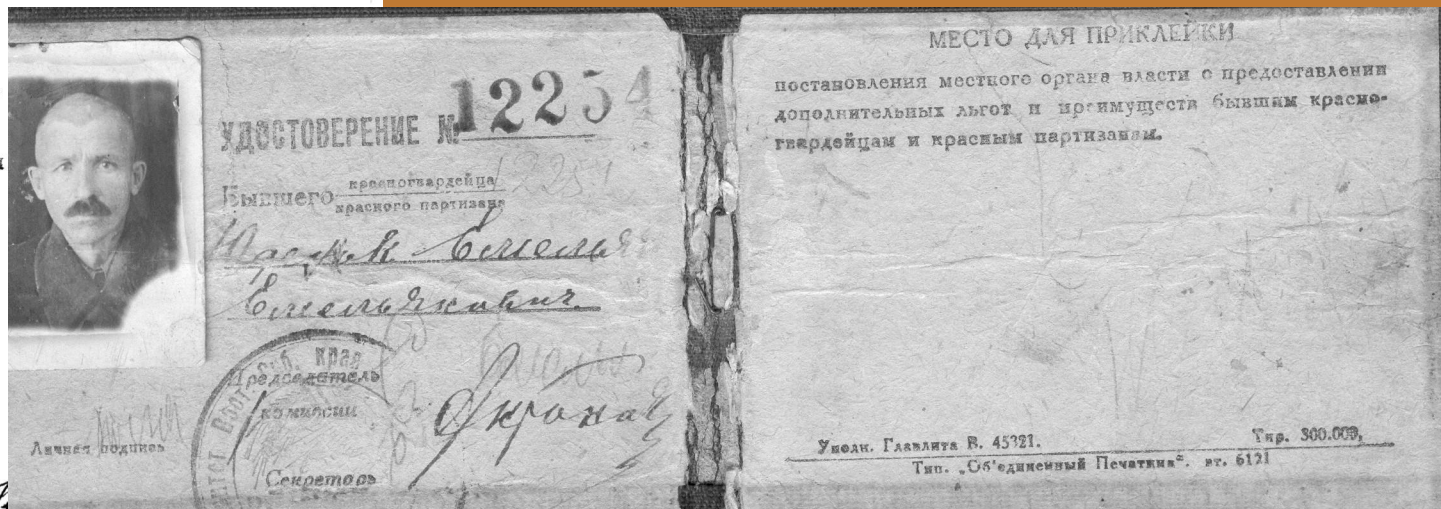 УДОСТОВЕРЕНИЕ № 12254
12254
Бывшего красногвардейца
красного партизана
Емелья
Емельянович
Вост. Сиб. Края
Председатель
комиссии
Личная подпись
Секретарь
МЕСТО ДЛЯ ПРИКЛЕЙКИ
постановления местного органа власти о предоставлении
дополнительных льгот и преимуществ бывшим красно-
гвардейцам и красным партизанам.
Уполн. Главлита В. 45321. Тир. 300.000,
Тип. „Об'единенный Печатник“. 6121